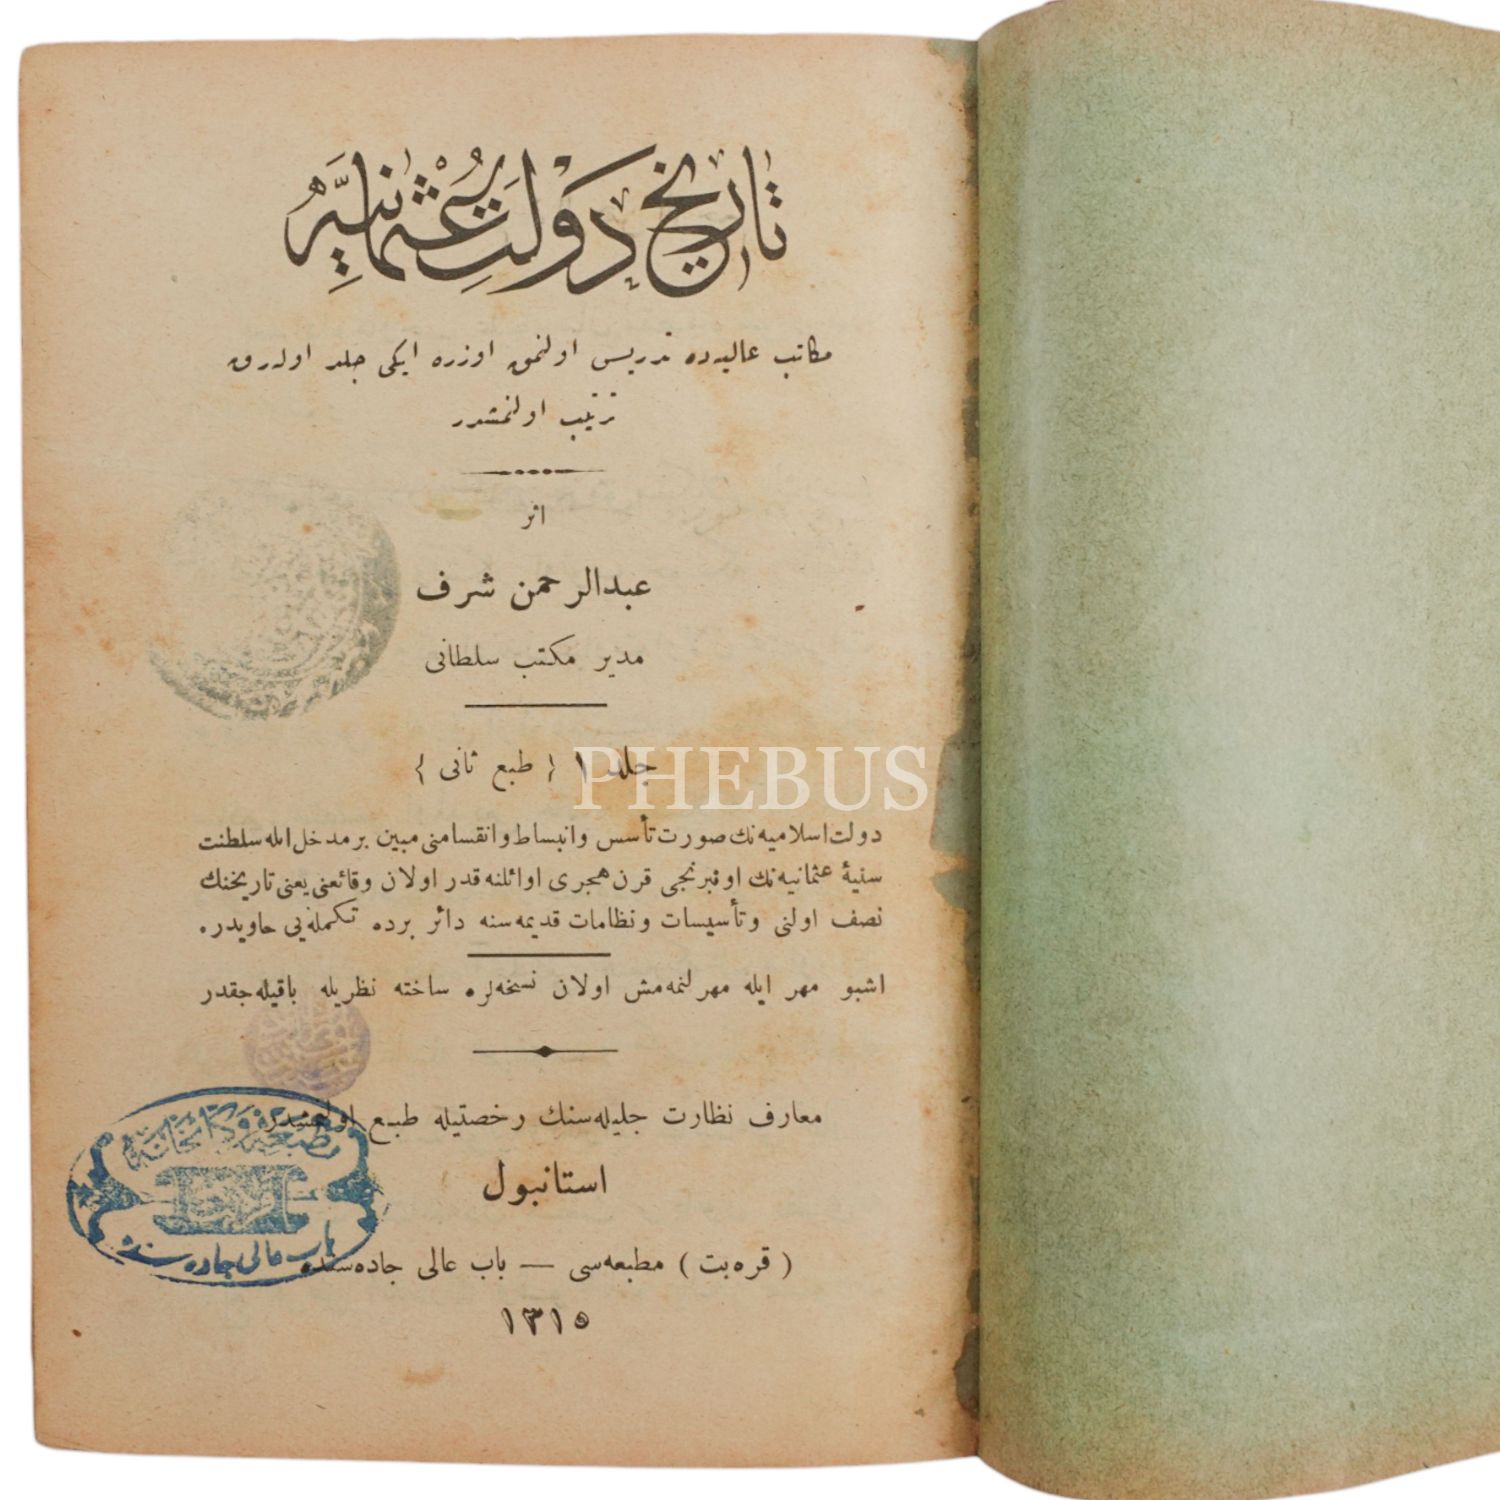 تاريخ دَولَتِ عُثمانيَّه
مكاتب عاليه‌ده تدريس اولنمق اوزره ايكى جلد اوله‌رق
ترتيب اولنمشدر
اثر
عبدالرحمن شرف
مدير مكتب سلطانى
جلد ١ { طبع ثانى }
PHEBUS
دولت اسلاميه‌نك صورت تأسس وانبساط وانقسامنى مبين بر مدخل ايله سلطنت
سنيهٔ عثمانيه‌نك اونبرنجى قرن هجرى اوائلنه قدر اولان وقائعنى يعنى تاريخنك
نصف اولنى وتأسيسات ونظامات قديمه‌سنه دائر برده تكمله‌يى حاويدر.
اشبو مهر ايله مهرلنمه‌مش اولان نسخه‌لره ساخته نظريله باقيله‌جقدر
معارف نظارت جليله‌سنك رخصتيله طبع اولنمشدر
استانبول
( قره‌بت ) مطبعه‌سى — باب عالى جاده‌سنده
١٣١٥
باب عالى جاده‌سنده